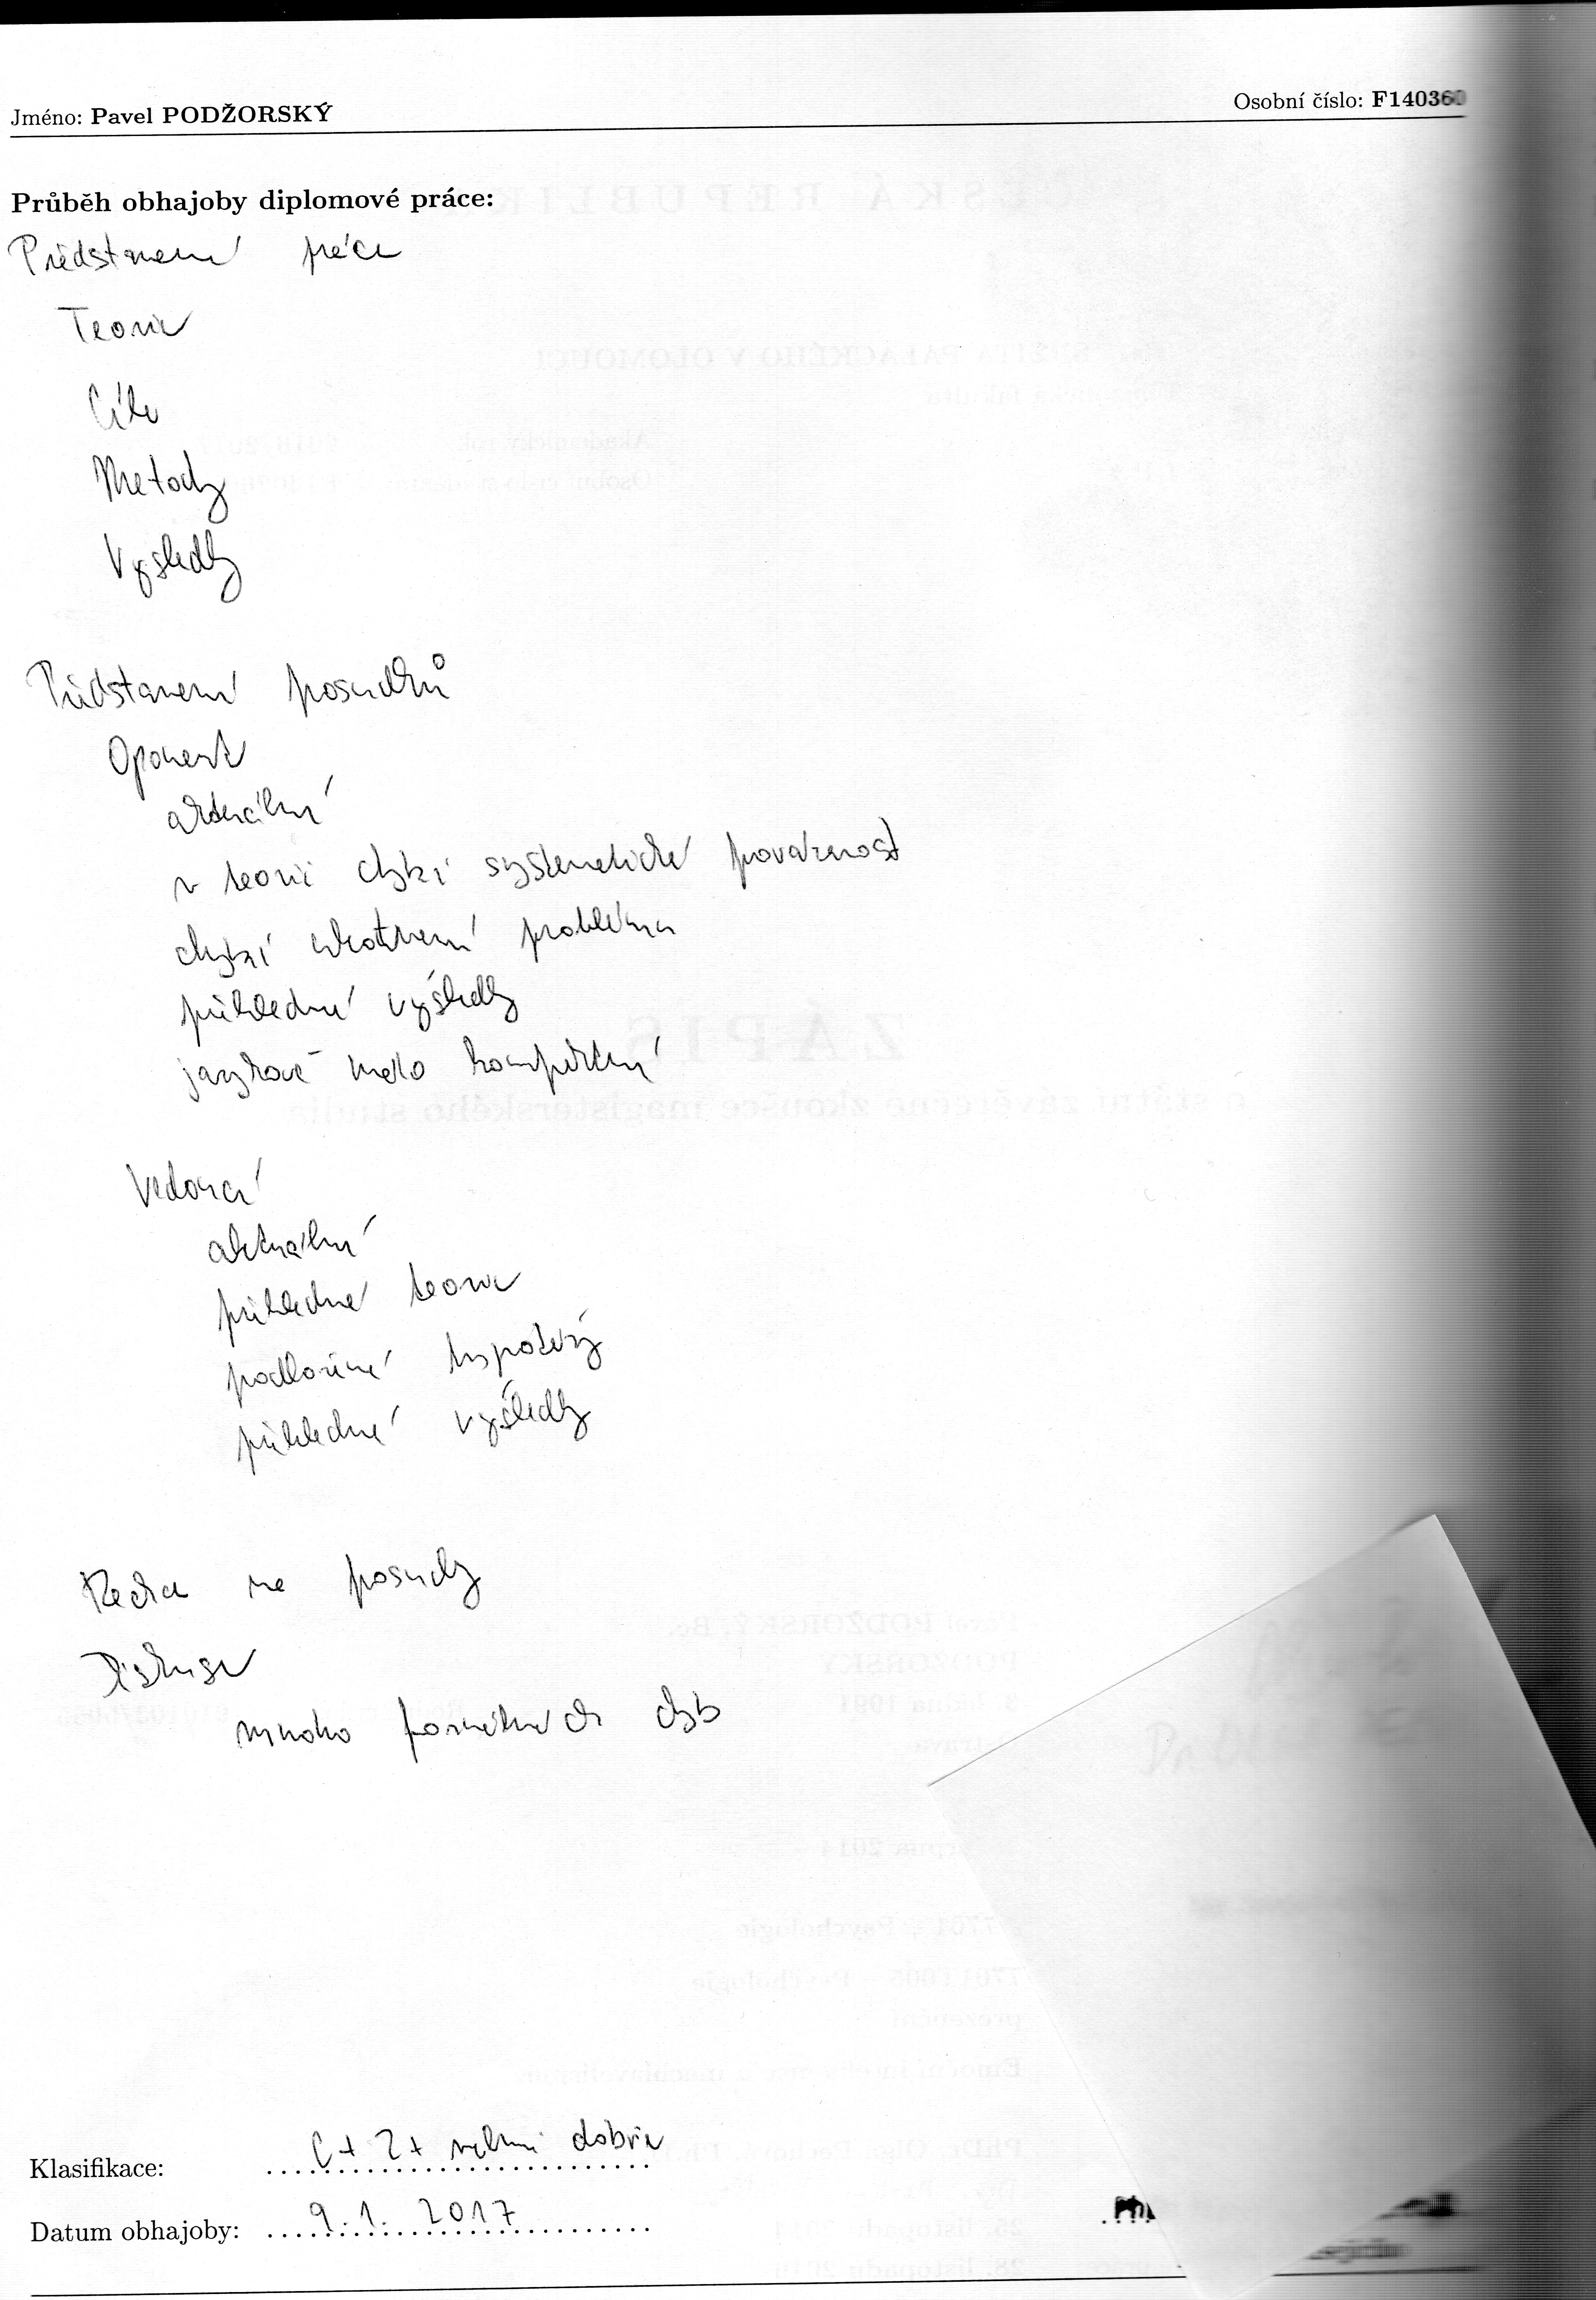 Jméno: Pavel PODŽORSKÝ Osobní číslo: F140360
Průběh obhajoby diplomové práce:
Představení práce
Teorie
Cíle
Metody
Výsledky
Představení posudků
Oponent
aktuální
v teorii chybí systematická provázanost
chybí ukotvení problému
přehledné výsledky
jazykově málo
Vedoucí
aktuální
přehledná teorie
podložené hypotézy
přehledné výsledky
Reakce na posudky
Diskuse
mnoho formálních chyb
Klasifikace: C+ 2+ velmi dobře
Datum obhajoby: 9.1. 2017